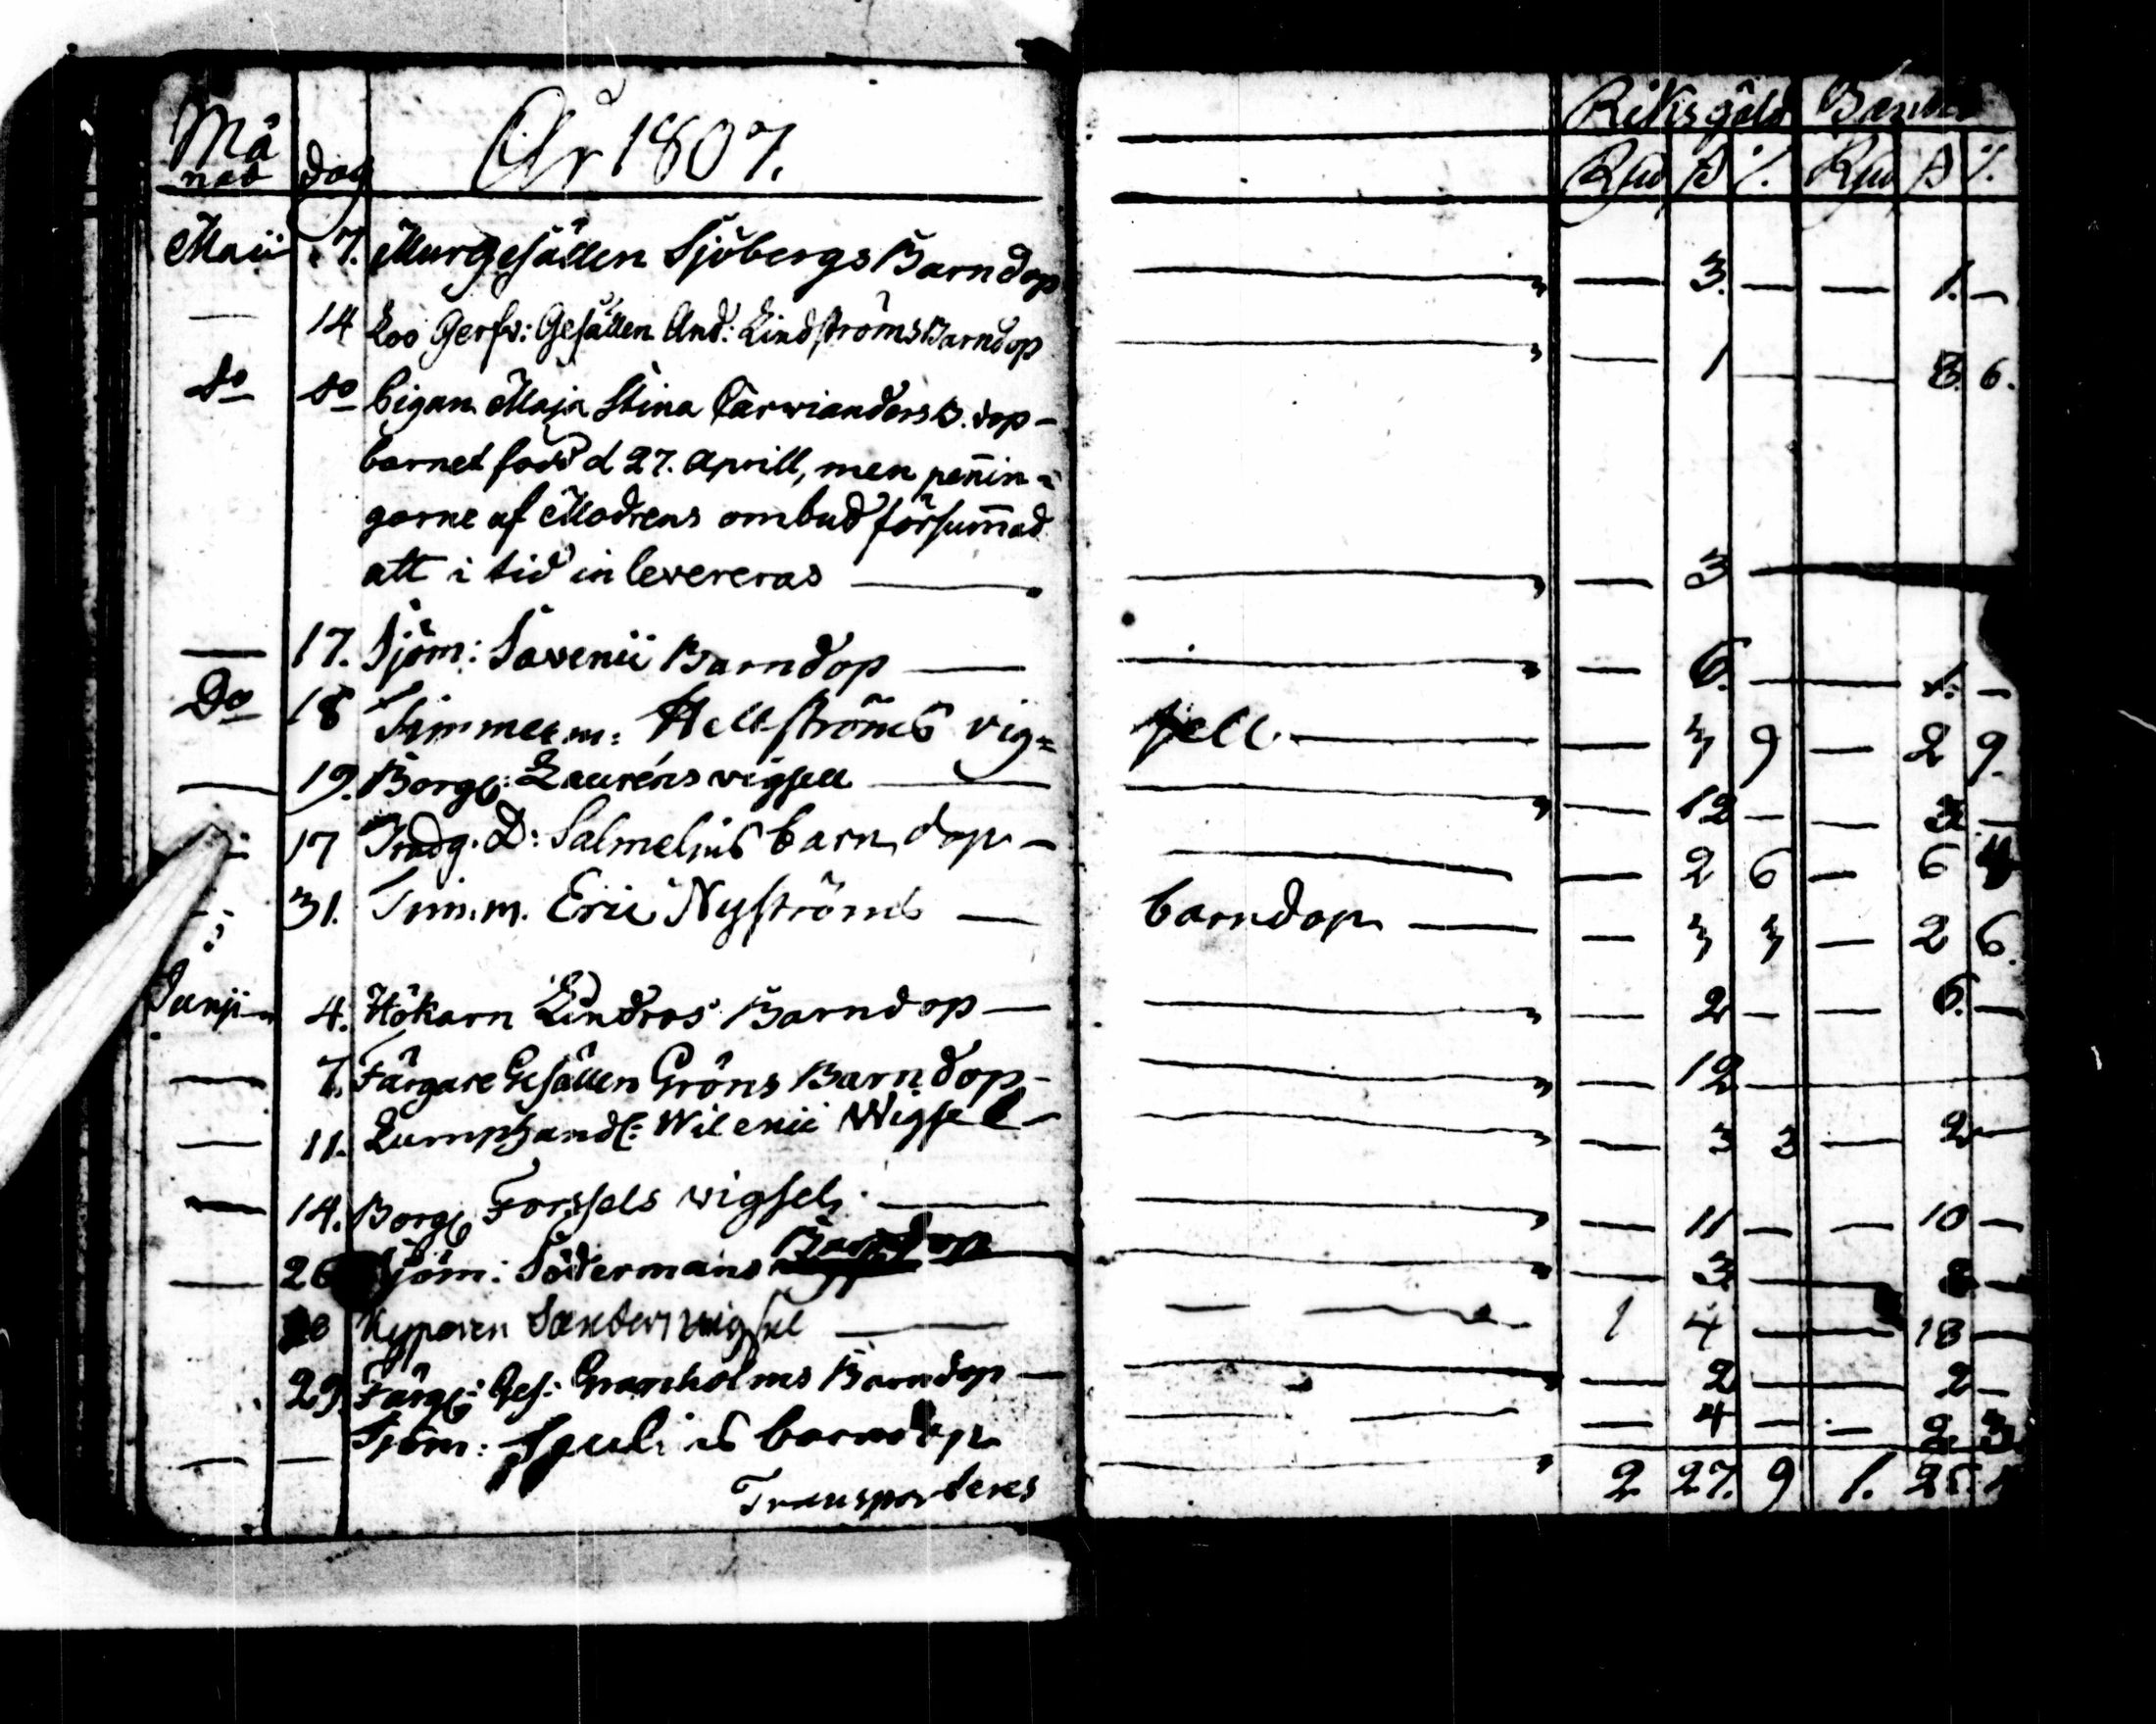 Riksgäld Banco
Må
nad dag År 1807. Rdr ß /. Rdr ß /.
Maii 7. Murgesällen Sjöbergs Barndop — 3. — — 1. —
— 14 Loo Gerfv: Gesällen And: Lindströms Barndop — 1 — — 8. 6.
do do Pigan Maja Stina Carvianders B. dop -
barnet född d 27. Aprill, men peñin-
garne af Modrens ombud försum̄ad
att i tid inlevereras — — 3 —
— 17. Sjöm: Savenii Barndop — — 6. — — 1. —
Do 18 Timmerm: Hellströms vig= sell. — — 3 9 — 2 9.
— 19. Borg: Lauréns vigsell — — 12 — — 3 —
17 Trädg. D: Salmelius barn dop — — 2 6 — 6 4
31. Timm. Eric Nyströms — barndop — — 3 3 — 2 6.
Junii 4. Hökarn Lindros Barndop — — 2 — — 6. —
— 7. Färgare Gesällen Gröns Barndop — — 12 —
— 11. Lumphandl: Wilenii Wigsel — — 3 3 — 2 —
— 14. Borg Forssels vigsel. — — 11 — — 10 —
— 26 Sjöm: Södermans Barndop — — 3 — 8 —
Kyparen Sanders vigsel — 1 4 — 18 —
29. Färg: Ges: Granholms Barndop — — 2 — 2 —
— — Sjöm: barndop — — 4 — — 2 3
Transporteres 2 27. 9 1.